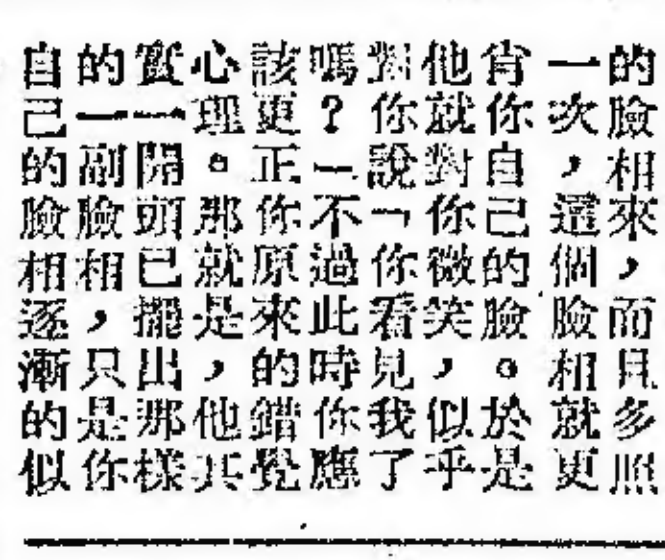 的臉相來，而且多照
一次，這個臉相就更
肖你自己的臉。於是
他就對你微笑，似乎
對你說「你看見我了
嗎？」不過此時你應
該更正你原來的錯覺
心理。那就是，他其
實一開頭已擺出那樣
的一副臉相，只是你
自己的臉相逐漸的似